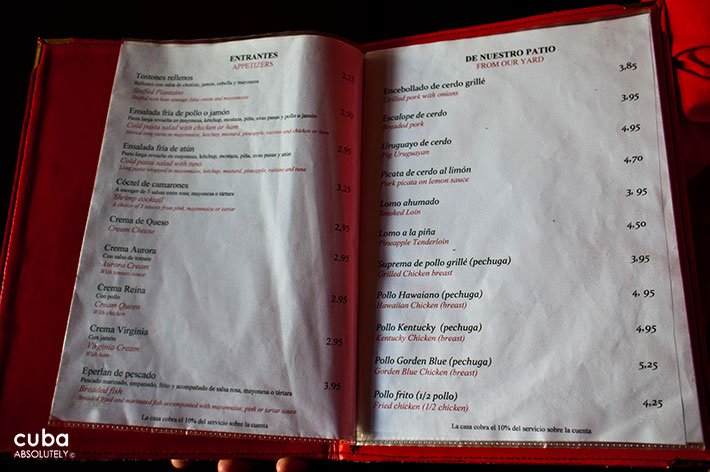 ENTRANTES
APPETIZERS
Tostones rellenos 2.25
Rellenos con salsa de chorizo, jamón, cebolla y mayonesa
Stuffed Plantains
Stuffed with ham sausage false onion and mayonnaise
Ensalada fría de pollo o jamón 2.50
Pasta larga revuelta en mayonesa, ketchup, mostaza, piña, uvas pasas y pollo o jamón
Cold pasta salad with chicken or ham
Stirred long pasta in mayonnaise, ketchup, mustard, pineapple, raisins and chicken or ham
Ensalada fría de atún 2.95
Pasta larga revuelta en mayonesa, ketchup, mostaza, piña, uvas pasas y atún
Cold pasta salad with tuna
Long pasta wrapped in mayonnaise, ketchup, mustard, pineapple, raisins and tuna
Cóctel de camarones 3.25
A escoger de 3 salsas entre rosa, mayonesa o tártara
Shrimp cocktail
A choice of 3 sauces from pink, mayonnaise or tartar
Crema de Queso 2.95
Cream Cheese
Crema Aurora 2.95
Con salsa de tomate
Aurora Cream
With tomato sauce
Crema Reina 2.95
Con pollo
Cream Queen
With chicken
Crema Virginia 2.95
Con jamón
Virginia Cream
With ham
Eperlan de pescado 3.95
Pescado marinado, empanado, frito y acompañado de salsa rosa, mayonesa o tártara
Breaded fish
Breaded fried and marinated fish accompanied with mayonnaise, pink or tartar sauce
La casa cobra el 10% del servicio sobre la cuenta
DE NUESTRO PATIO
FROM OUR YARD
Encebollado de cerdo grillé 3,85
Grilled pork with onions
Escalope de cerdo 3.95
Breaded pork
Uruguayo de cerdo 4,95
Pig Uruguayan
Picata de cerdo al limón 4,70
Pork picata on lemon sauce
Lomo ahumado 3, 95
Smoked Loin
Lomo a la piña 4,50
Pineapple Tenderloin
Suprema de pollo grillé (pechuga) 3.95
Grilled Chicken breast
Pollo Hawaiano (pechuga) 4, 95
Hawaiian Chicken (breast)
Pollo Kentucky (pechuga) 4,95
Kentucky Chicken (breast)
Pollo Gorden Blue (pechuga) 5,25
Gorden Blue Chicken (breast)
Pollo frito (1/2 pollo) 4,25
Fried chicken (1/2 chicken)
La casa cobra el 10% del servicio sobre la cuenta
cuba
ABSOLUTELY ©